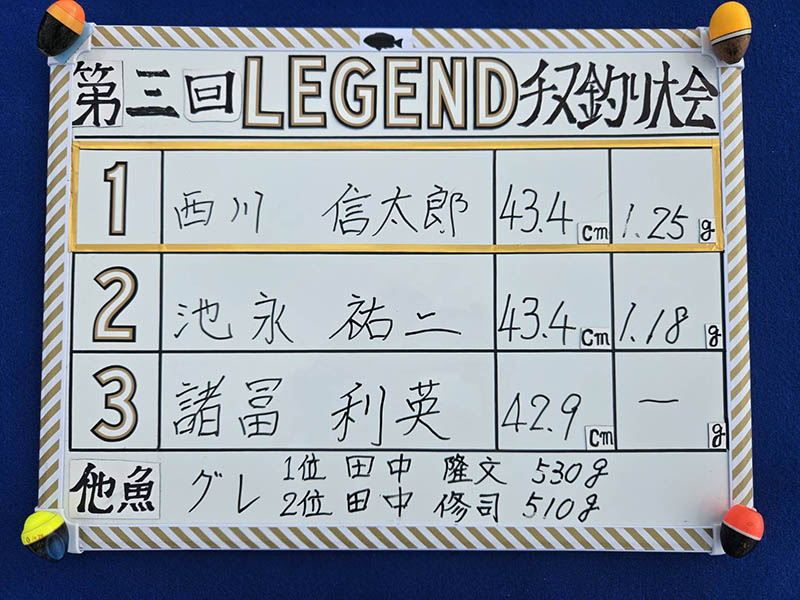 第三回 LEGEND チヌ釣り大会
1 西川 信太郎 43.4 cm 1.25 g
2 池永 祐二 43.4 cm 1.18 g
3 諸冨 利英 42.9 cm — g
他魚 グレ 1位 田中 隆文 530g
2位 田中 修司 510g